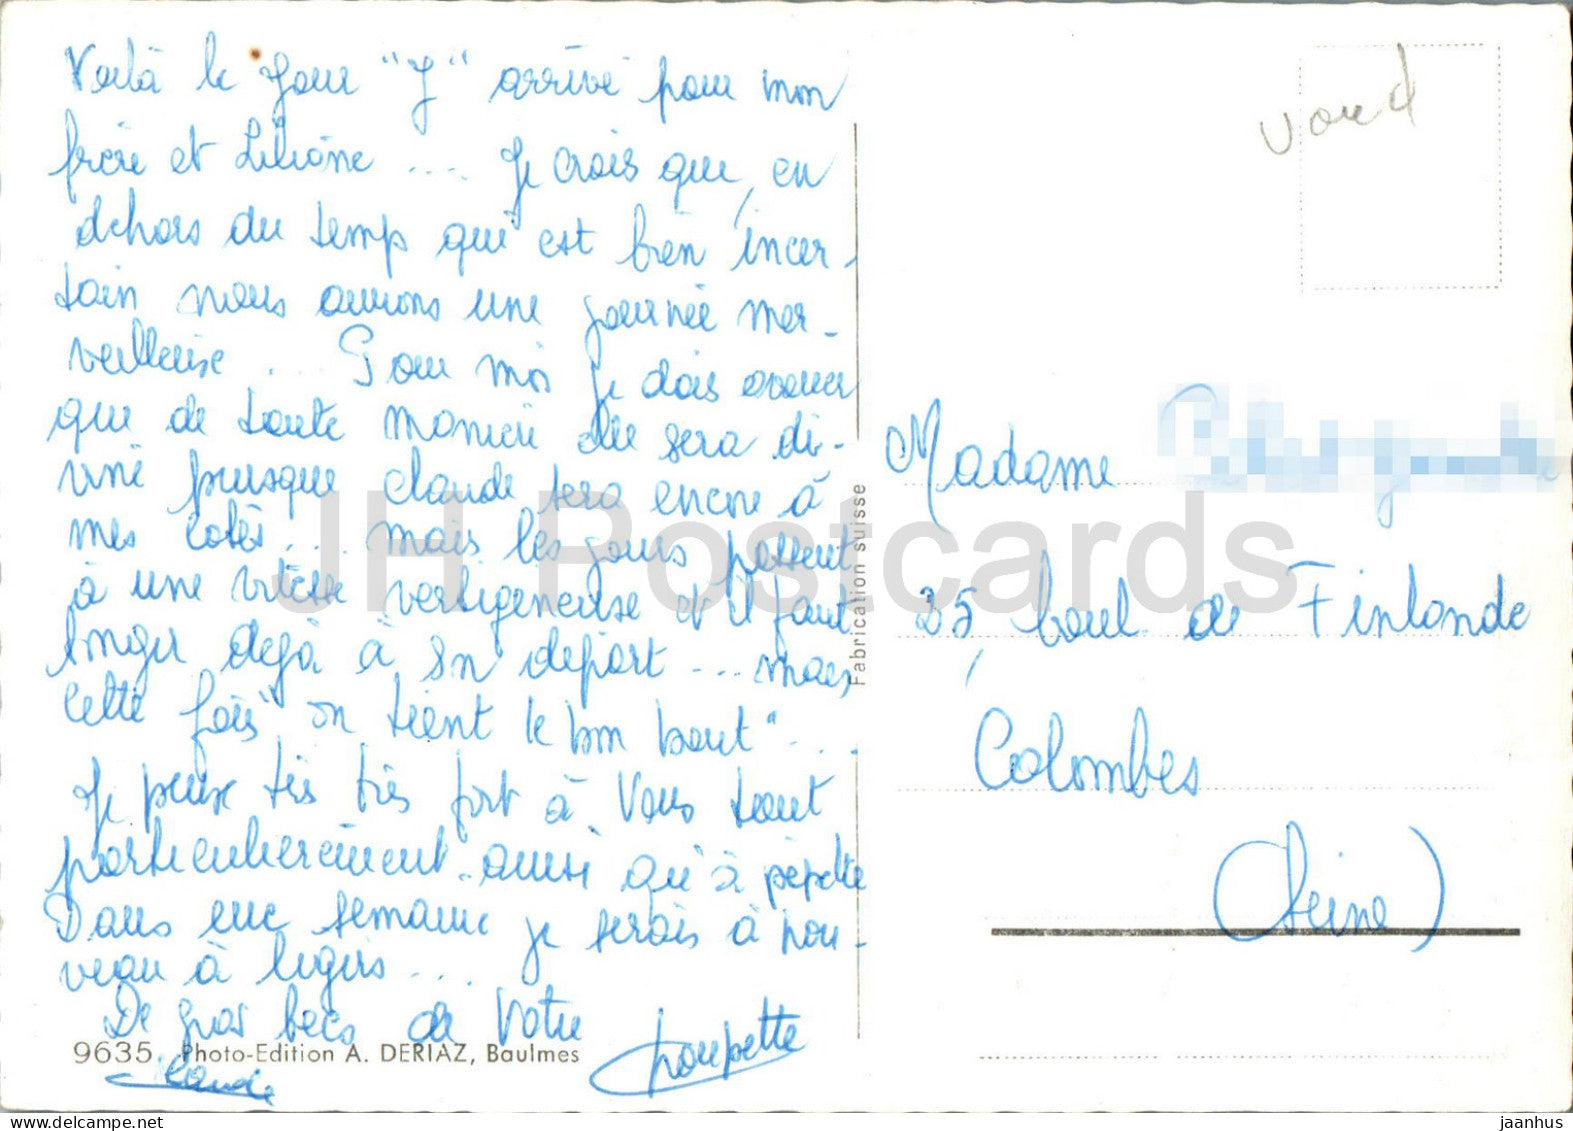 Voilà le Jour "J" arrivé pour mon
frère et Liliane .... Je crois que, en
dehors du temp qui est bien incer-
tain nous aurons une journée mer-
veilleuse ... Pour moi je dois avouer
que de toute manière elle sera di-
vine puisque Claude sera encore à
mes cotés ... mais les jours passent
à une vitesse vertigeneuse et il faut
songer dejà à son depart ... mais
cette fois "on tient le bon bout" ...
Je pense très très fort à Vous tout
particulièrement ainsi qu'à pépette
Dans une semaine je serais à nou-
veau à Ligers ...
De gros becs de Votre
Choupette
Claude
9635 Photo-Edition A. DERIAZ, Baulmes
Fabrication suisse
vaud
Madame
35, boul de Finlande
Colombes
(Seine)
JH Postcards
delcampe.net
jaanhus